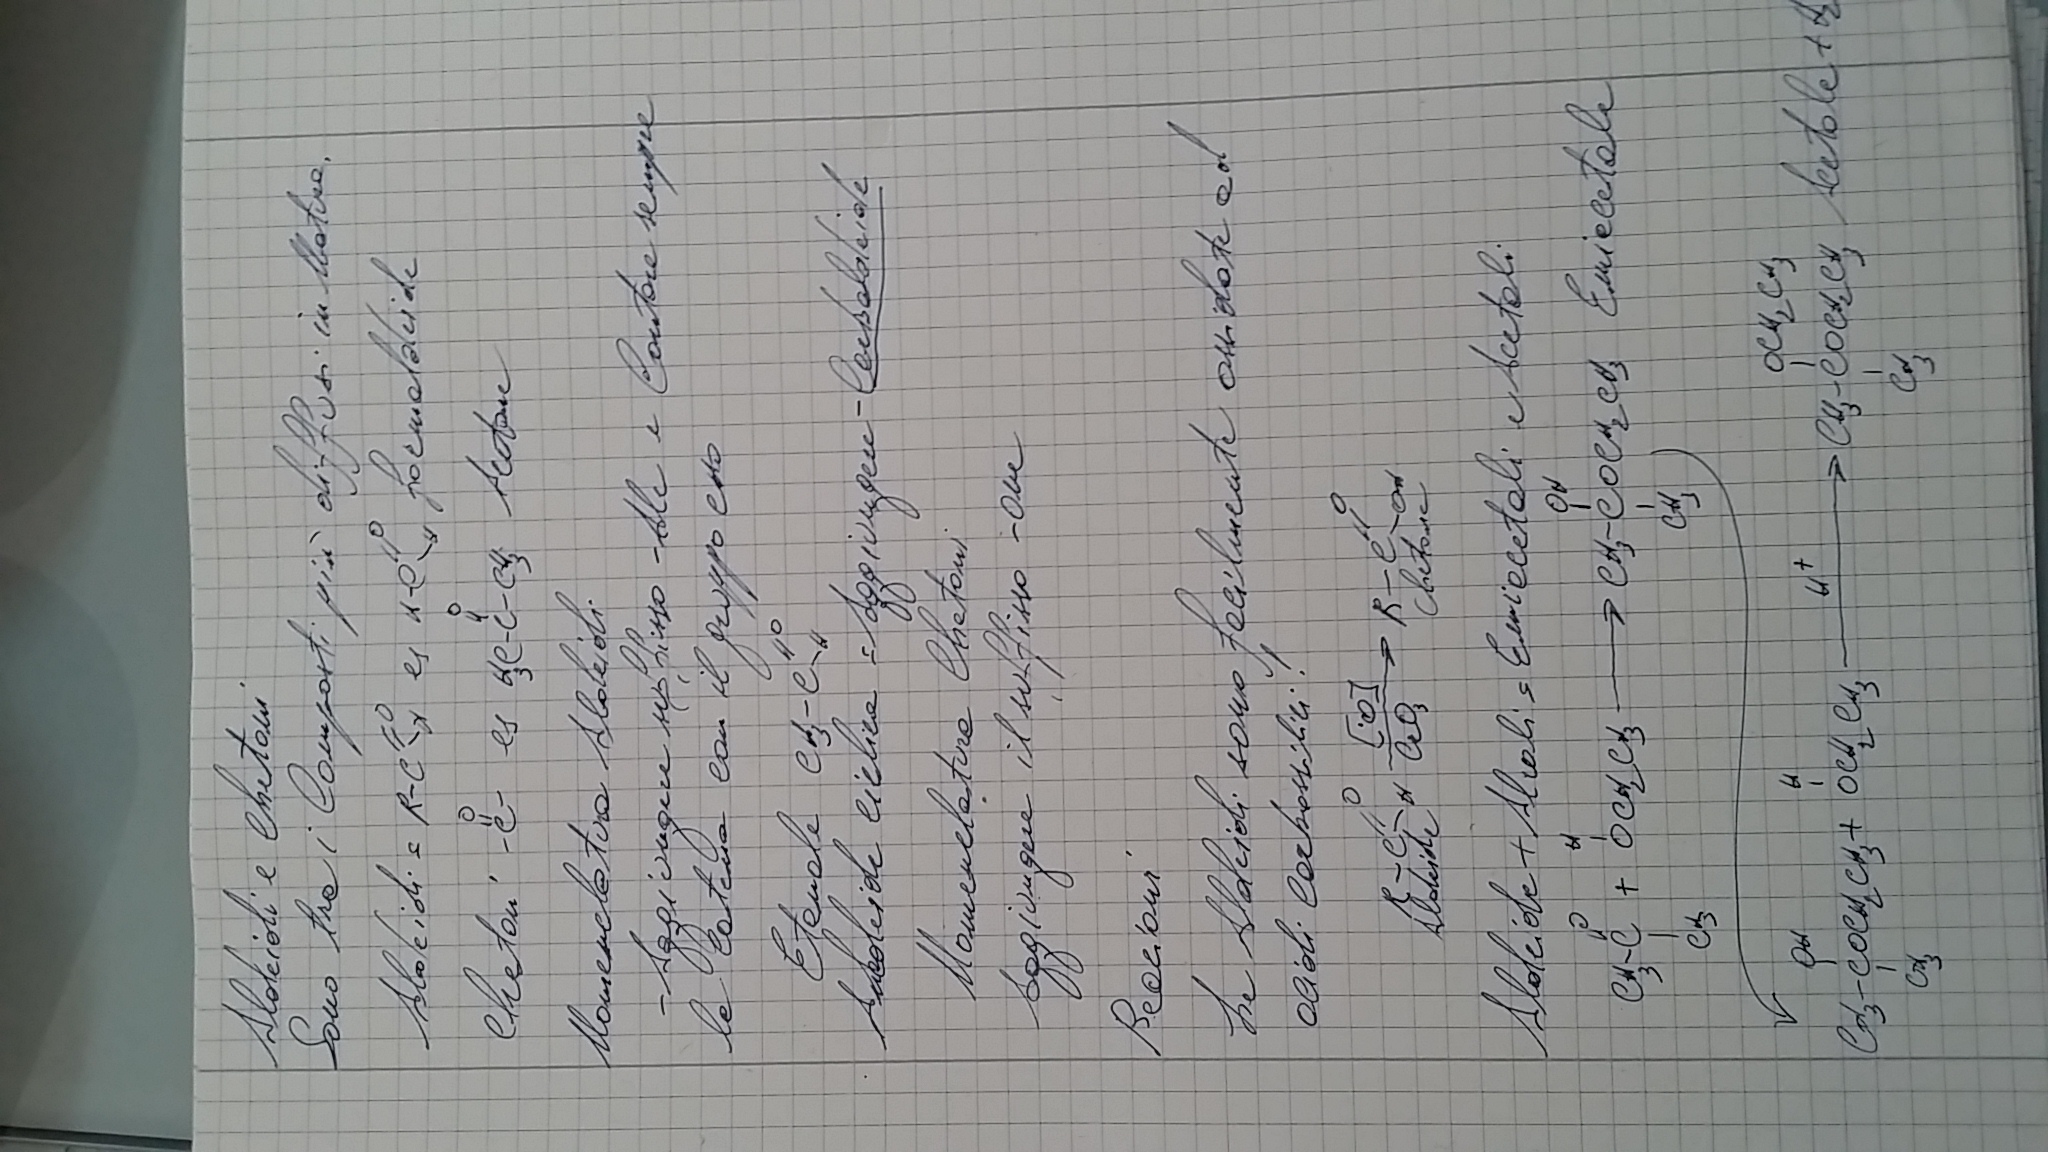 Aldeidi e Chetoni
Sono tra i Composti più diffusi in Natura.
Aldeidi = R-C=O H es H-C=O H formaldeide
Chetoni -C=O- es H3C-C=O-CH3 Acetone
Nomenclatura Aldeidi
- Aggiungere suffisso -Ale e Contare sempre
la Catena con il gruppo CHO
Etanale CH3-C=O H
Aldeide ciclica = Aggiungere - Carbaldeide
Nomenclatura Chetoni
Aggiungere il suffisso -one
Reazioni
Le Aldeidi sono facilmente ossidate ad
acidi Carbossilici!
R-C=O H [O] CrO3 → R-C=O OH
Aldeide Chetone
Aldeide + Alcoli = Emiacetali e Acetali
CH3-C=O CH3 + H OCH2CH3 → CH3-COCH2CH3 OH CH3 Emiacetale
CH3-COCH2CH3 OH CH3 + H OCH2CH3 H+ → CH3-COCH2CH3 OCH2CH3 CH3 Acetale +